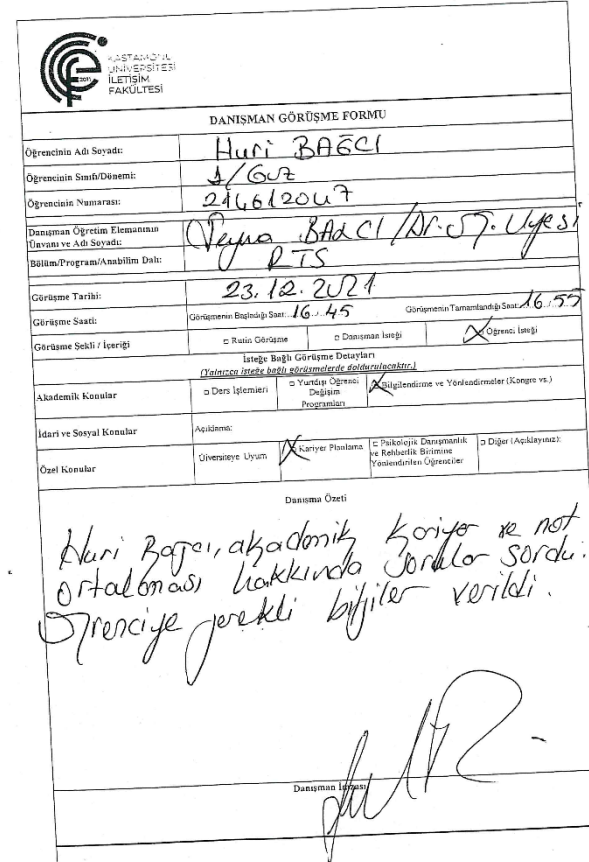 KASTAMONU
ÜNİVERSİTESİ
İLETİŞİM
FAKÜLTESİ
2011
DANIŞMAN GÖRÜŞME FORMU
Öğrencinin Adı Soyadı: Huri BAĞCI
Öğrencinin Sınıfı/Dönemi: 1/Güz
Öğrencinin Numarası: 214612047
Danışman Öğretim Elemanının
Ünvanı ve Adı Soyadı: BAĞCI /Dr. Öğ. Üyesi
Bölüm/Program/Anabilim Dalı: RTS
Görüşme Tarihi: 23.12.2021
Görüşme Saati: Görüşmenin Başladığı Saat: 16.45 Görüşmenin Tamamlandığı Saat: 16.55
Görüşme Şekli / İçeriği □ Rutin Görüşme □ Danışman İsteği X Öğrenci İsteği
İsteğe Bağlı Görüşme Detayları
(Yalnızca isteğe bağlı görüşmelerde doldurulacaktır.)
Akademik Konular □ Ders İşlemleri □ Yurtdışı Öğrenci Değişim Programları X Bilgilendirme ve Yönlendirmeler (Kongre vs.)
İdari ve Sosyal Konular Açıklama:
Özel Konular Üiversiteye Uyum X Kariyer Planlama □ Psikolojik Danışmanlık ve Rehberlik Birimine Yönlendirilen Öğrenciler □ Diğer (Açıklayınız):
Danışma Özeti
Huri Bağcı, akademik kariyer ve not
ortalaması hakkında sorular sordu.
Öğrenciye gerekli bilgiler verildi.
Danışman İmzası